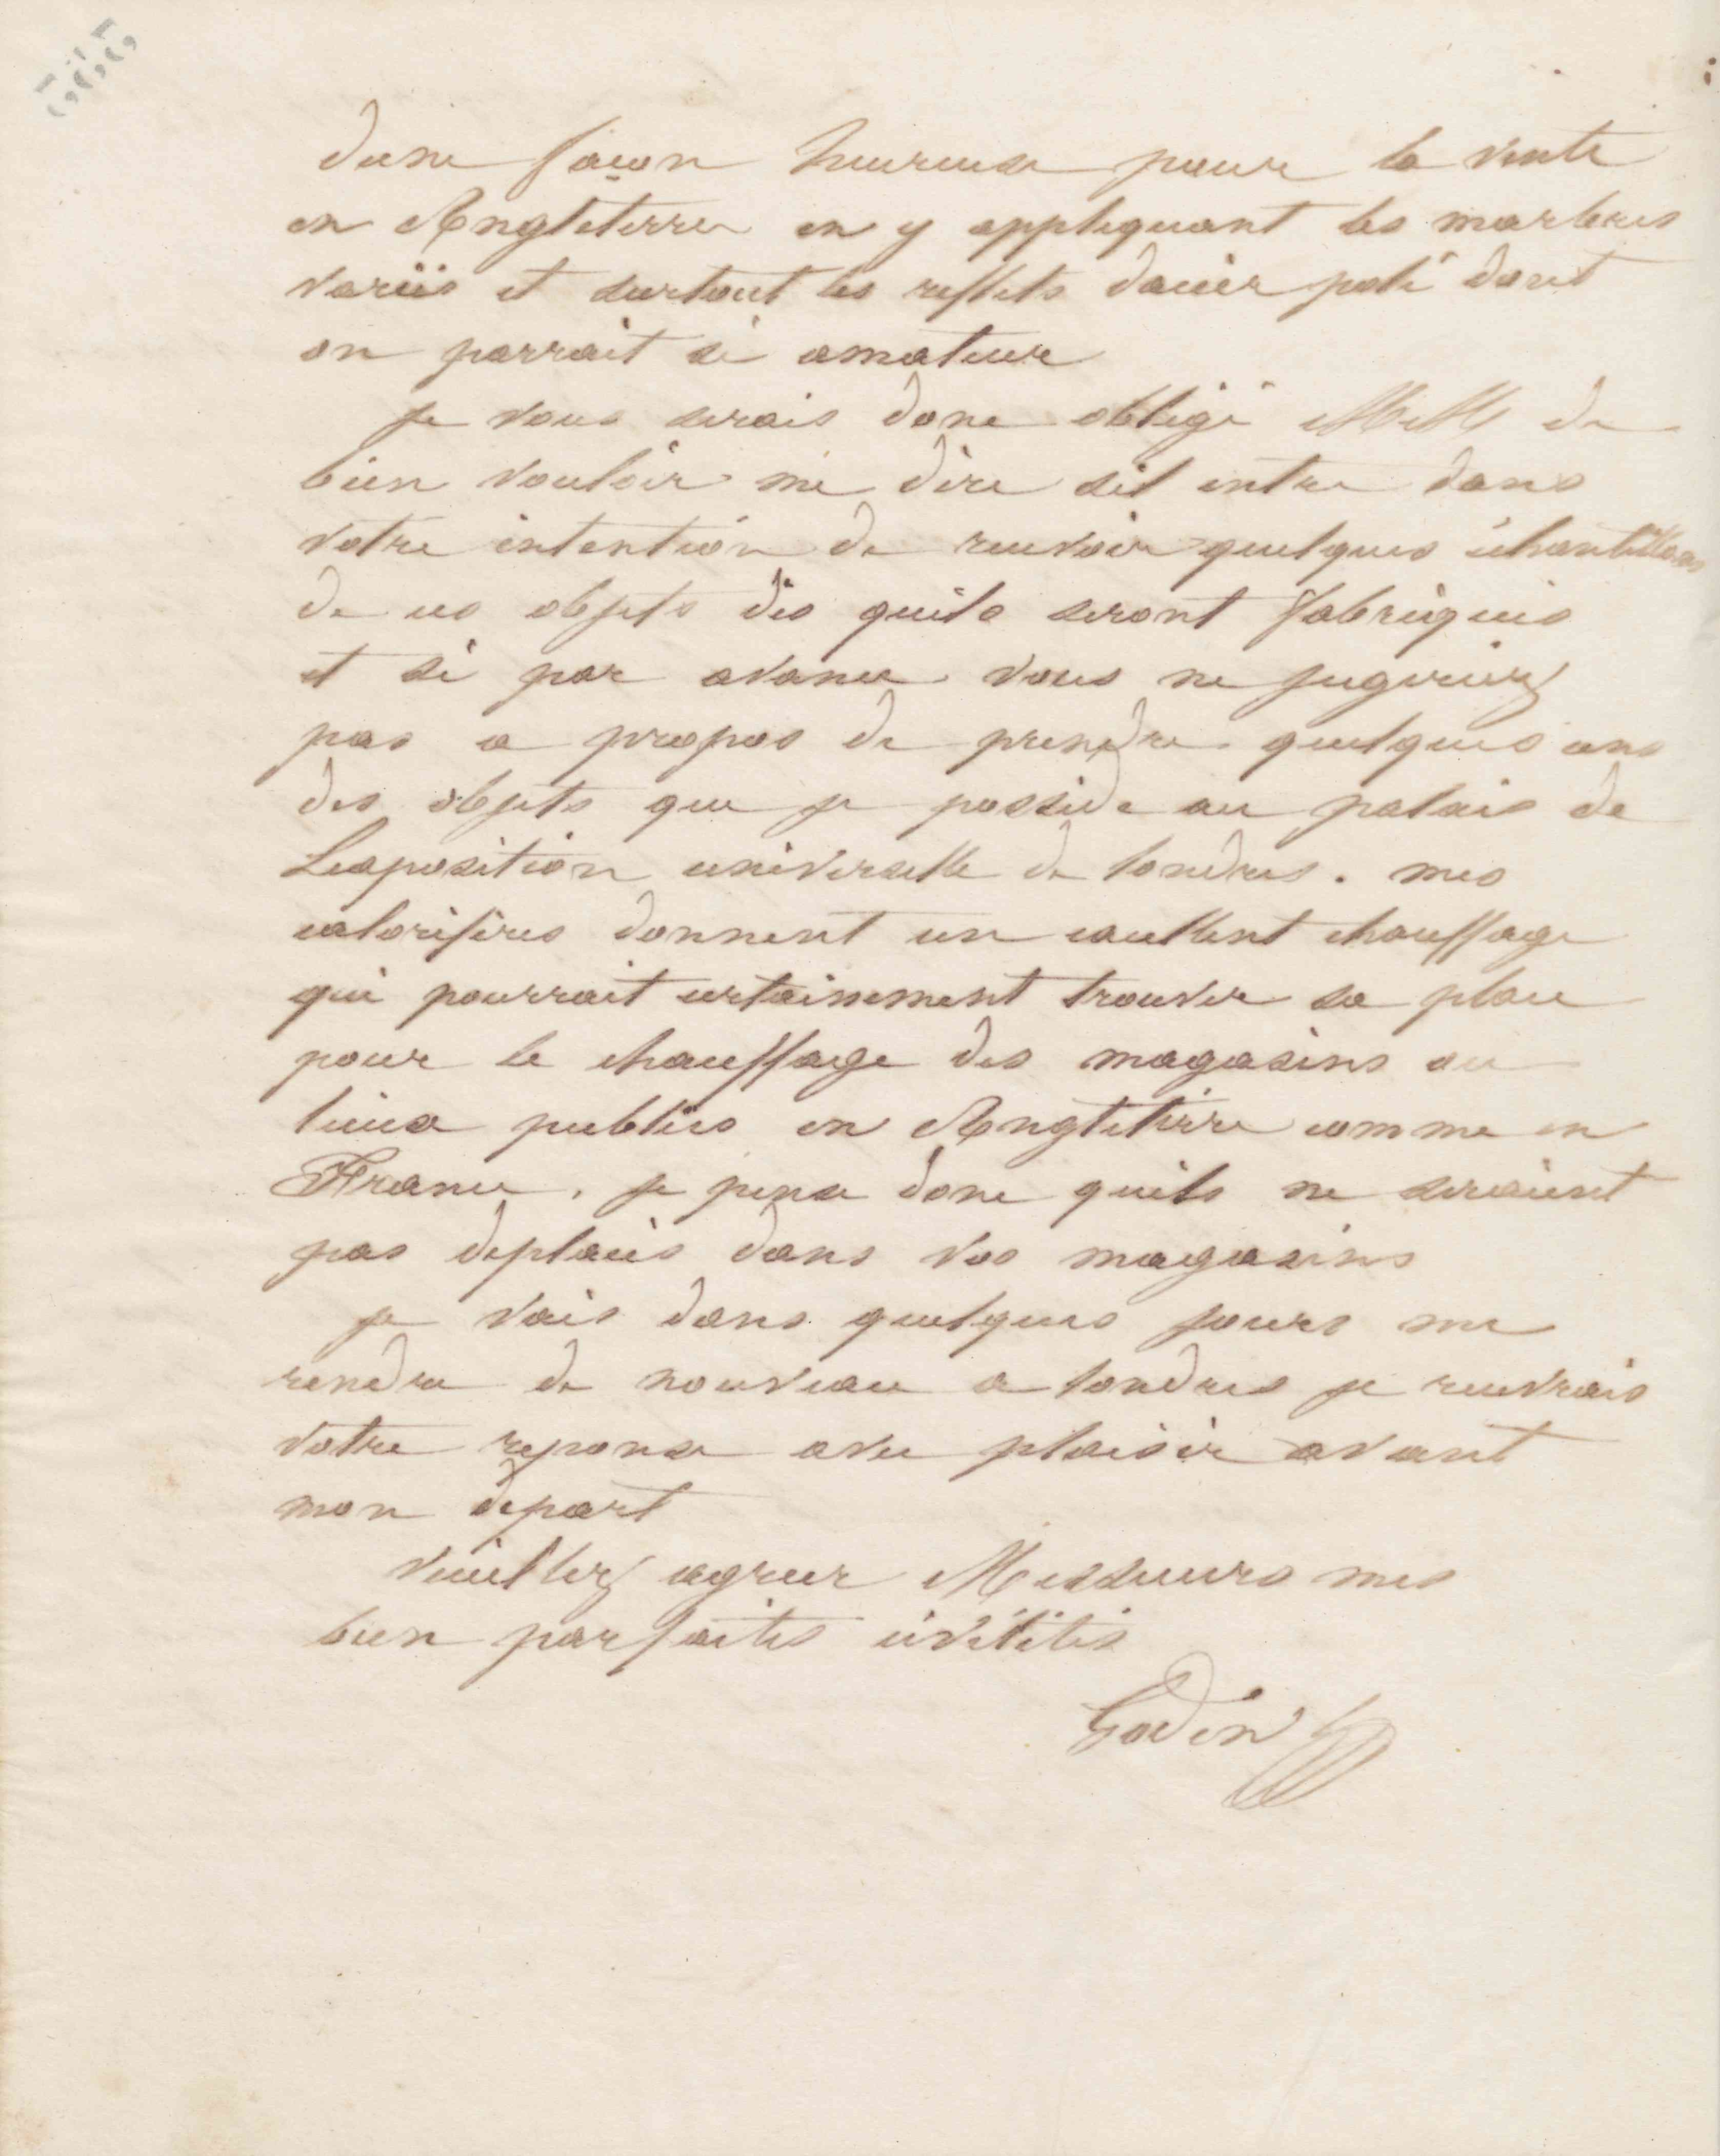 dune façon heureuse pour la vente
en Angleterre en y appliquant les marbres
variés et surtout les reflets dacier poli dont
on parrait si amateur
je vous serais donc obligé MM de
bien vouloir me dire sil entre dans
votre intention de recevoir quelques échantillons
de ces objets dès quils seront fabriqués
et si par avance vous ne jugeriez
pas a propos de prendre quelques uns
des objets que je posside au palais de
Lexposition universelle de londres . mes
calorifères donnent un excellent chauffage
qui pourrait certainement trouver sa place
pour le chauffage des magasins ou
lieux publics en Angleterre comme en
France . je pense donc quils ne seraient
pas déplacés dans vos magasins
je vais dans quelques jours me
rendre de nouveau a londres je recevrais
votre reponse avec plaisir avant
mon depart
veuillez agreer Messieurs mes
bien parfaites civilités
Godin